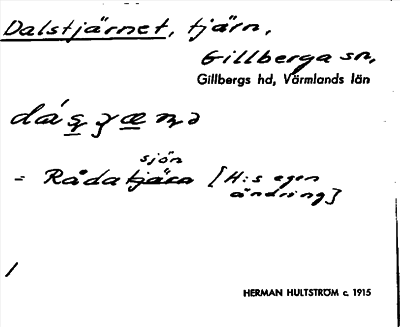 Dalstjärnet, tjärn,
Gillberga sn,
Gillbergs hd, Värmlands län
sjön
= Rådatjärn [H:s egen
ändring]
/
HERMAN HULTSTRÖM c. 1915